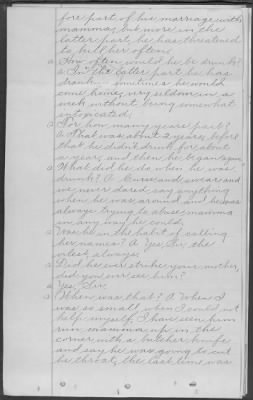 fore part of his marriage with
mamma, but more in the
latter part he has threatened
to kill her often.
Q How often would he be drunk?
A In the latter part he has
drank sometimes he would
come home, very seldom in a
week without being somewhat
intoxicated.
Q For how many years past?
A That was about 2 years, before
that he didn't drink for about
a year, and then he began again.
Q What did he do when he was
drunk? A. Curse and swear and
we never dared say anything
when he was around and he was
always trying to abuse mamma
in any way he could.
Q Was he in the habit of calling
her names? A Yes, Sir, the
vilest always.
Q Did he ever strike your mother,
did you ever see him?
A Yes Sir.
Q When was that? A. When I
was so small when I could not
help myself I have seen him
run mamma up in the
corner with a butcher knife
and say he was going to cut
he throat, the last time was